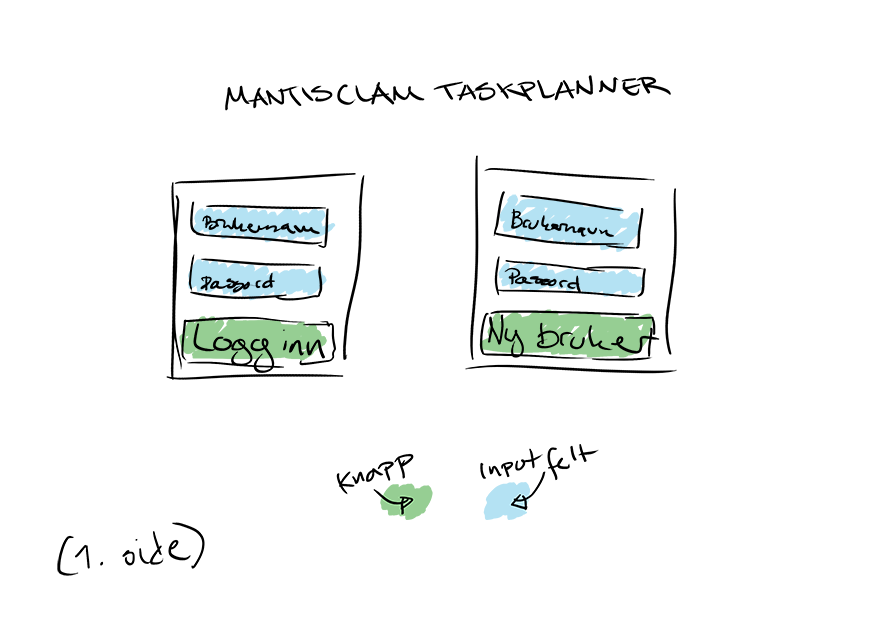 MANTISCLAM TASKPLANNER
Brukernavn
Passord
Logg inn
Brukernavn
Passord
Ny bruker
Knapp
Input felt
(1. side)